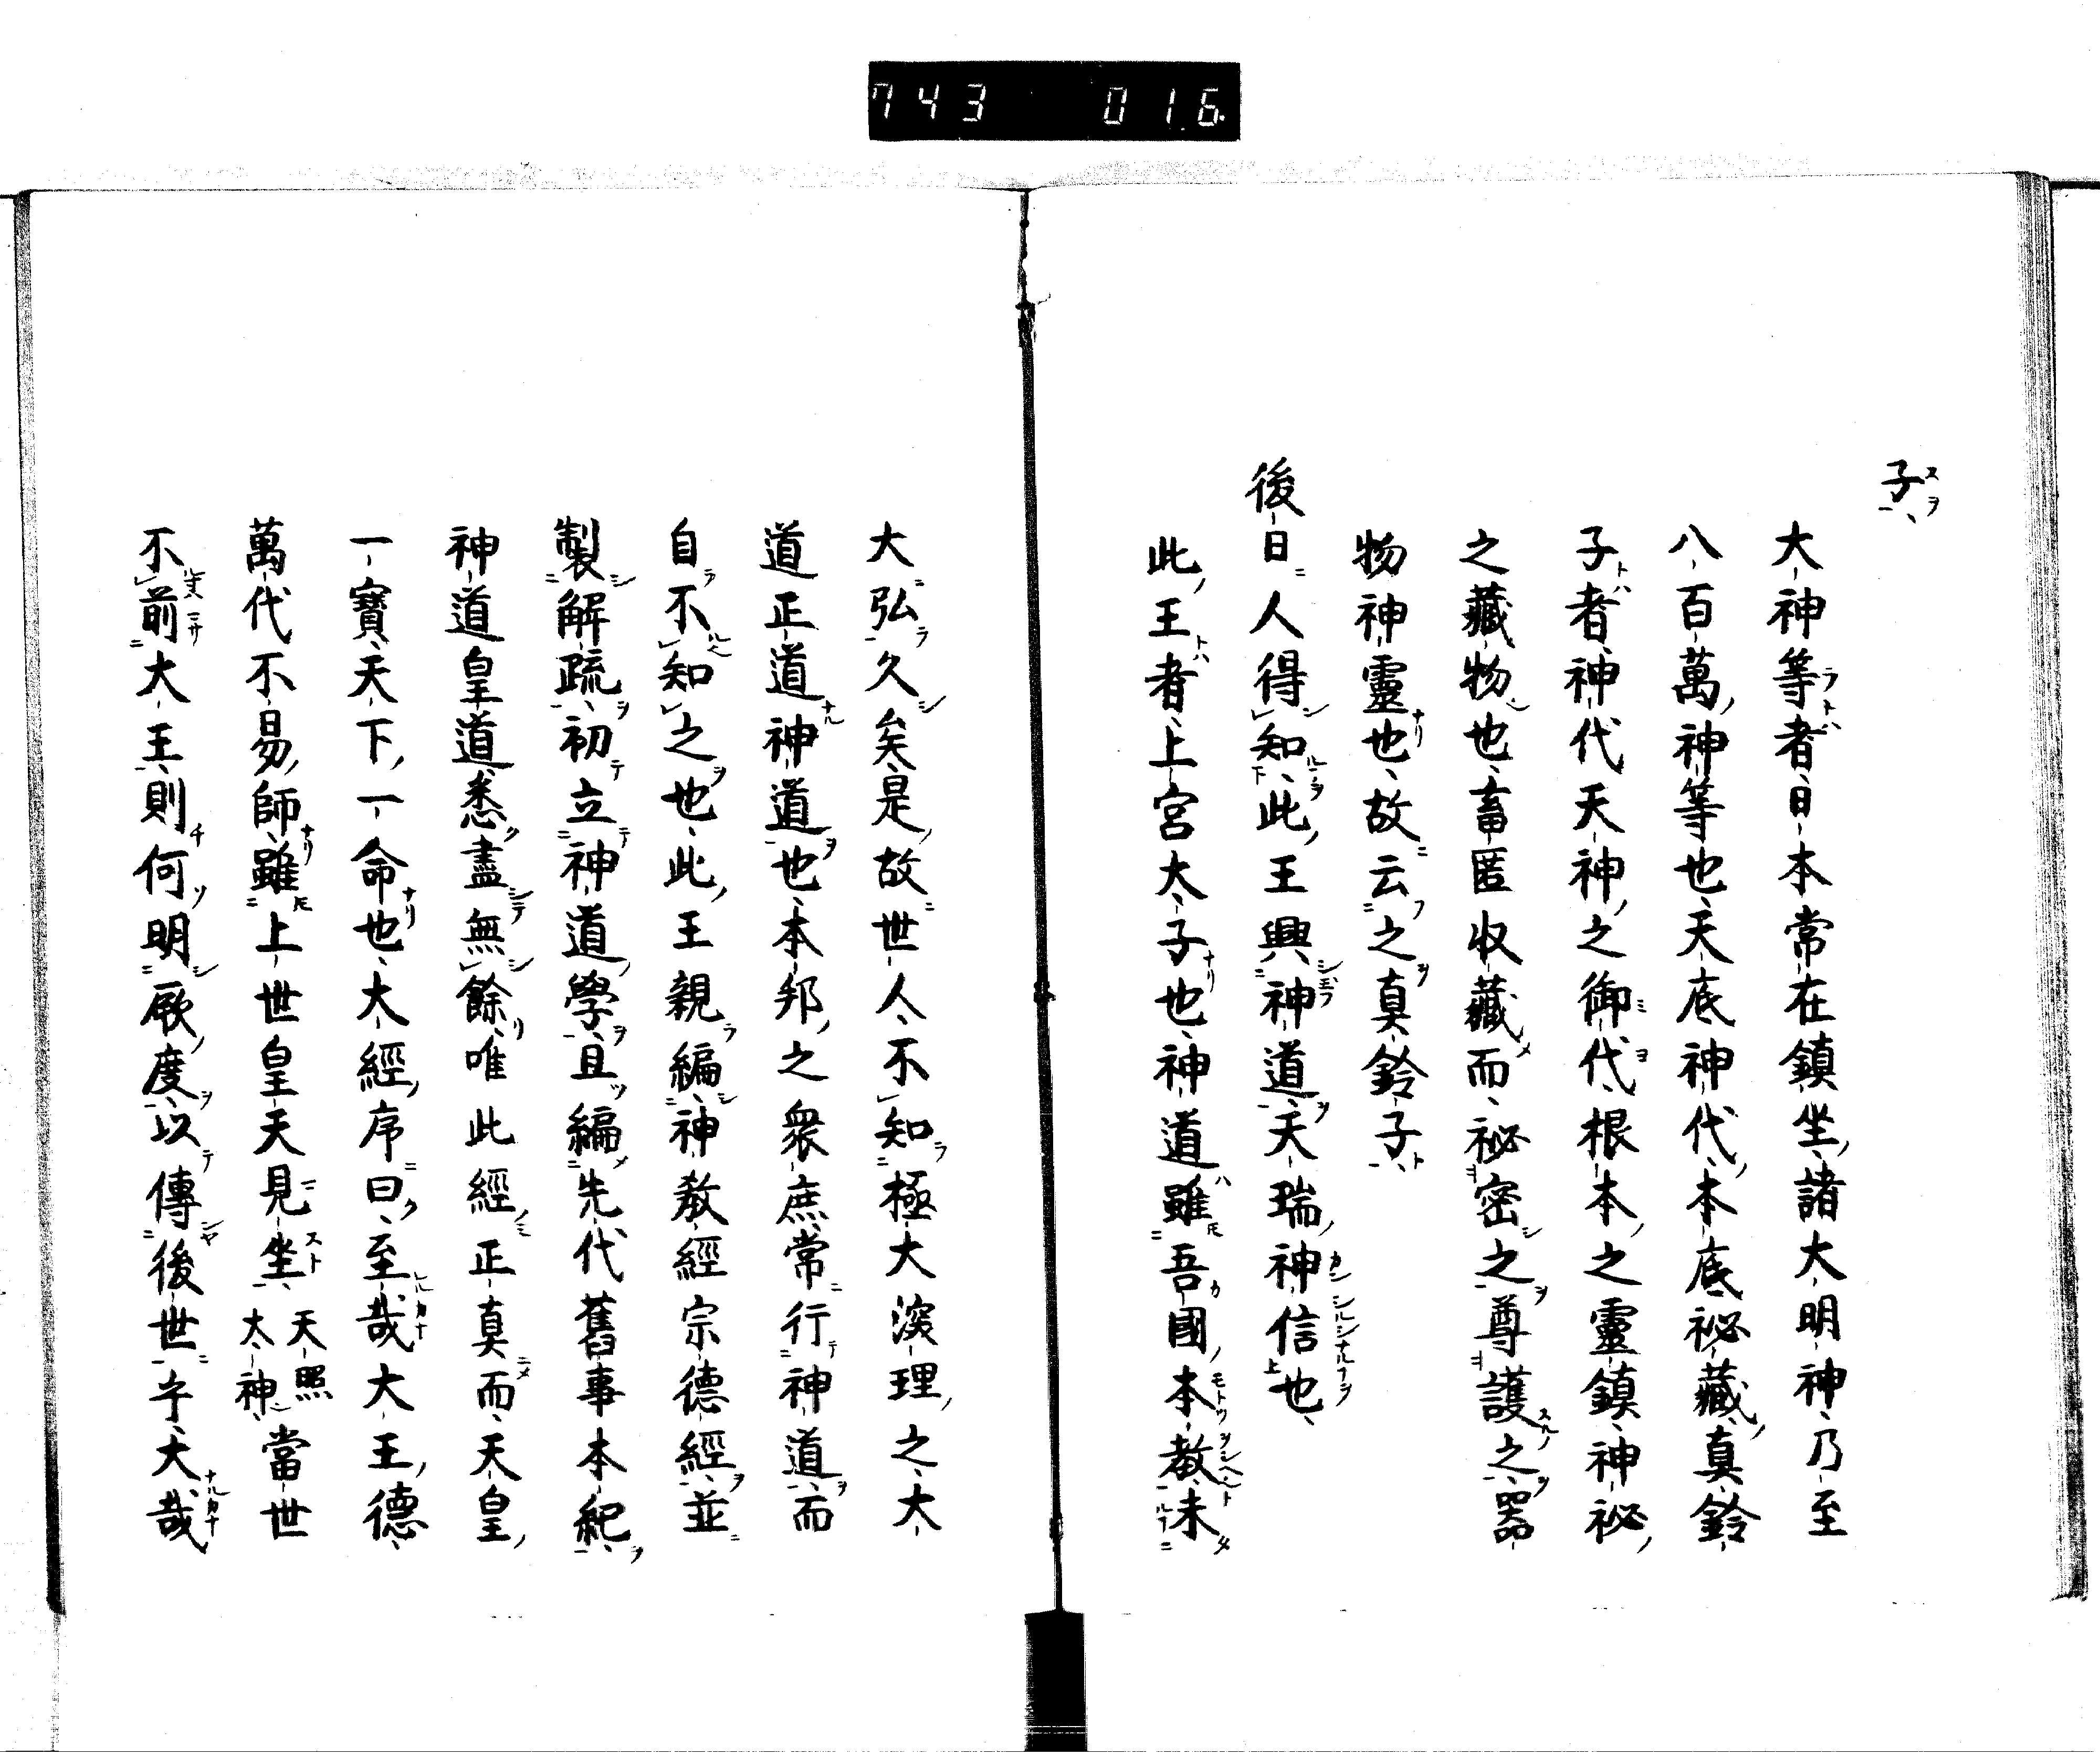 743 016
子
大神等者日本常在鎮坐諸大明神乃至
八百萬神等也天底神代本底祕藏真鈴
子者神代天神之御代根本之靈鎮神祕
之藏物也畜匿収藏而祕密之尊護之器
物神靈也故云之真鈴子
後日人得知此王興神道天瑞神信也
此王者上宮太子也神道雖吾國本教未
大弘久矣是故世人不知極大深理之大
道正道神道也本邦之衆庶常行神道而
自不知之也此王親編神教經宗德經並
製解疏初立神道學且編先代舊事本紀
神道皇道悉盡無餘唯此經正真而天皇
一寶天下一命也大經序曰至哉大王德
萬代不易師雖上世皇天見坐天照太神當世
不前大王則何明厥度以傳後世乎大哉